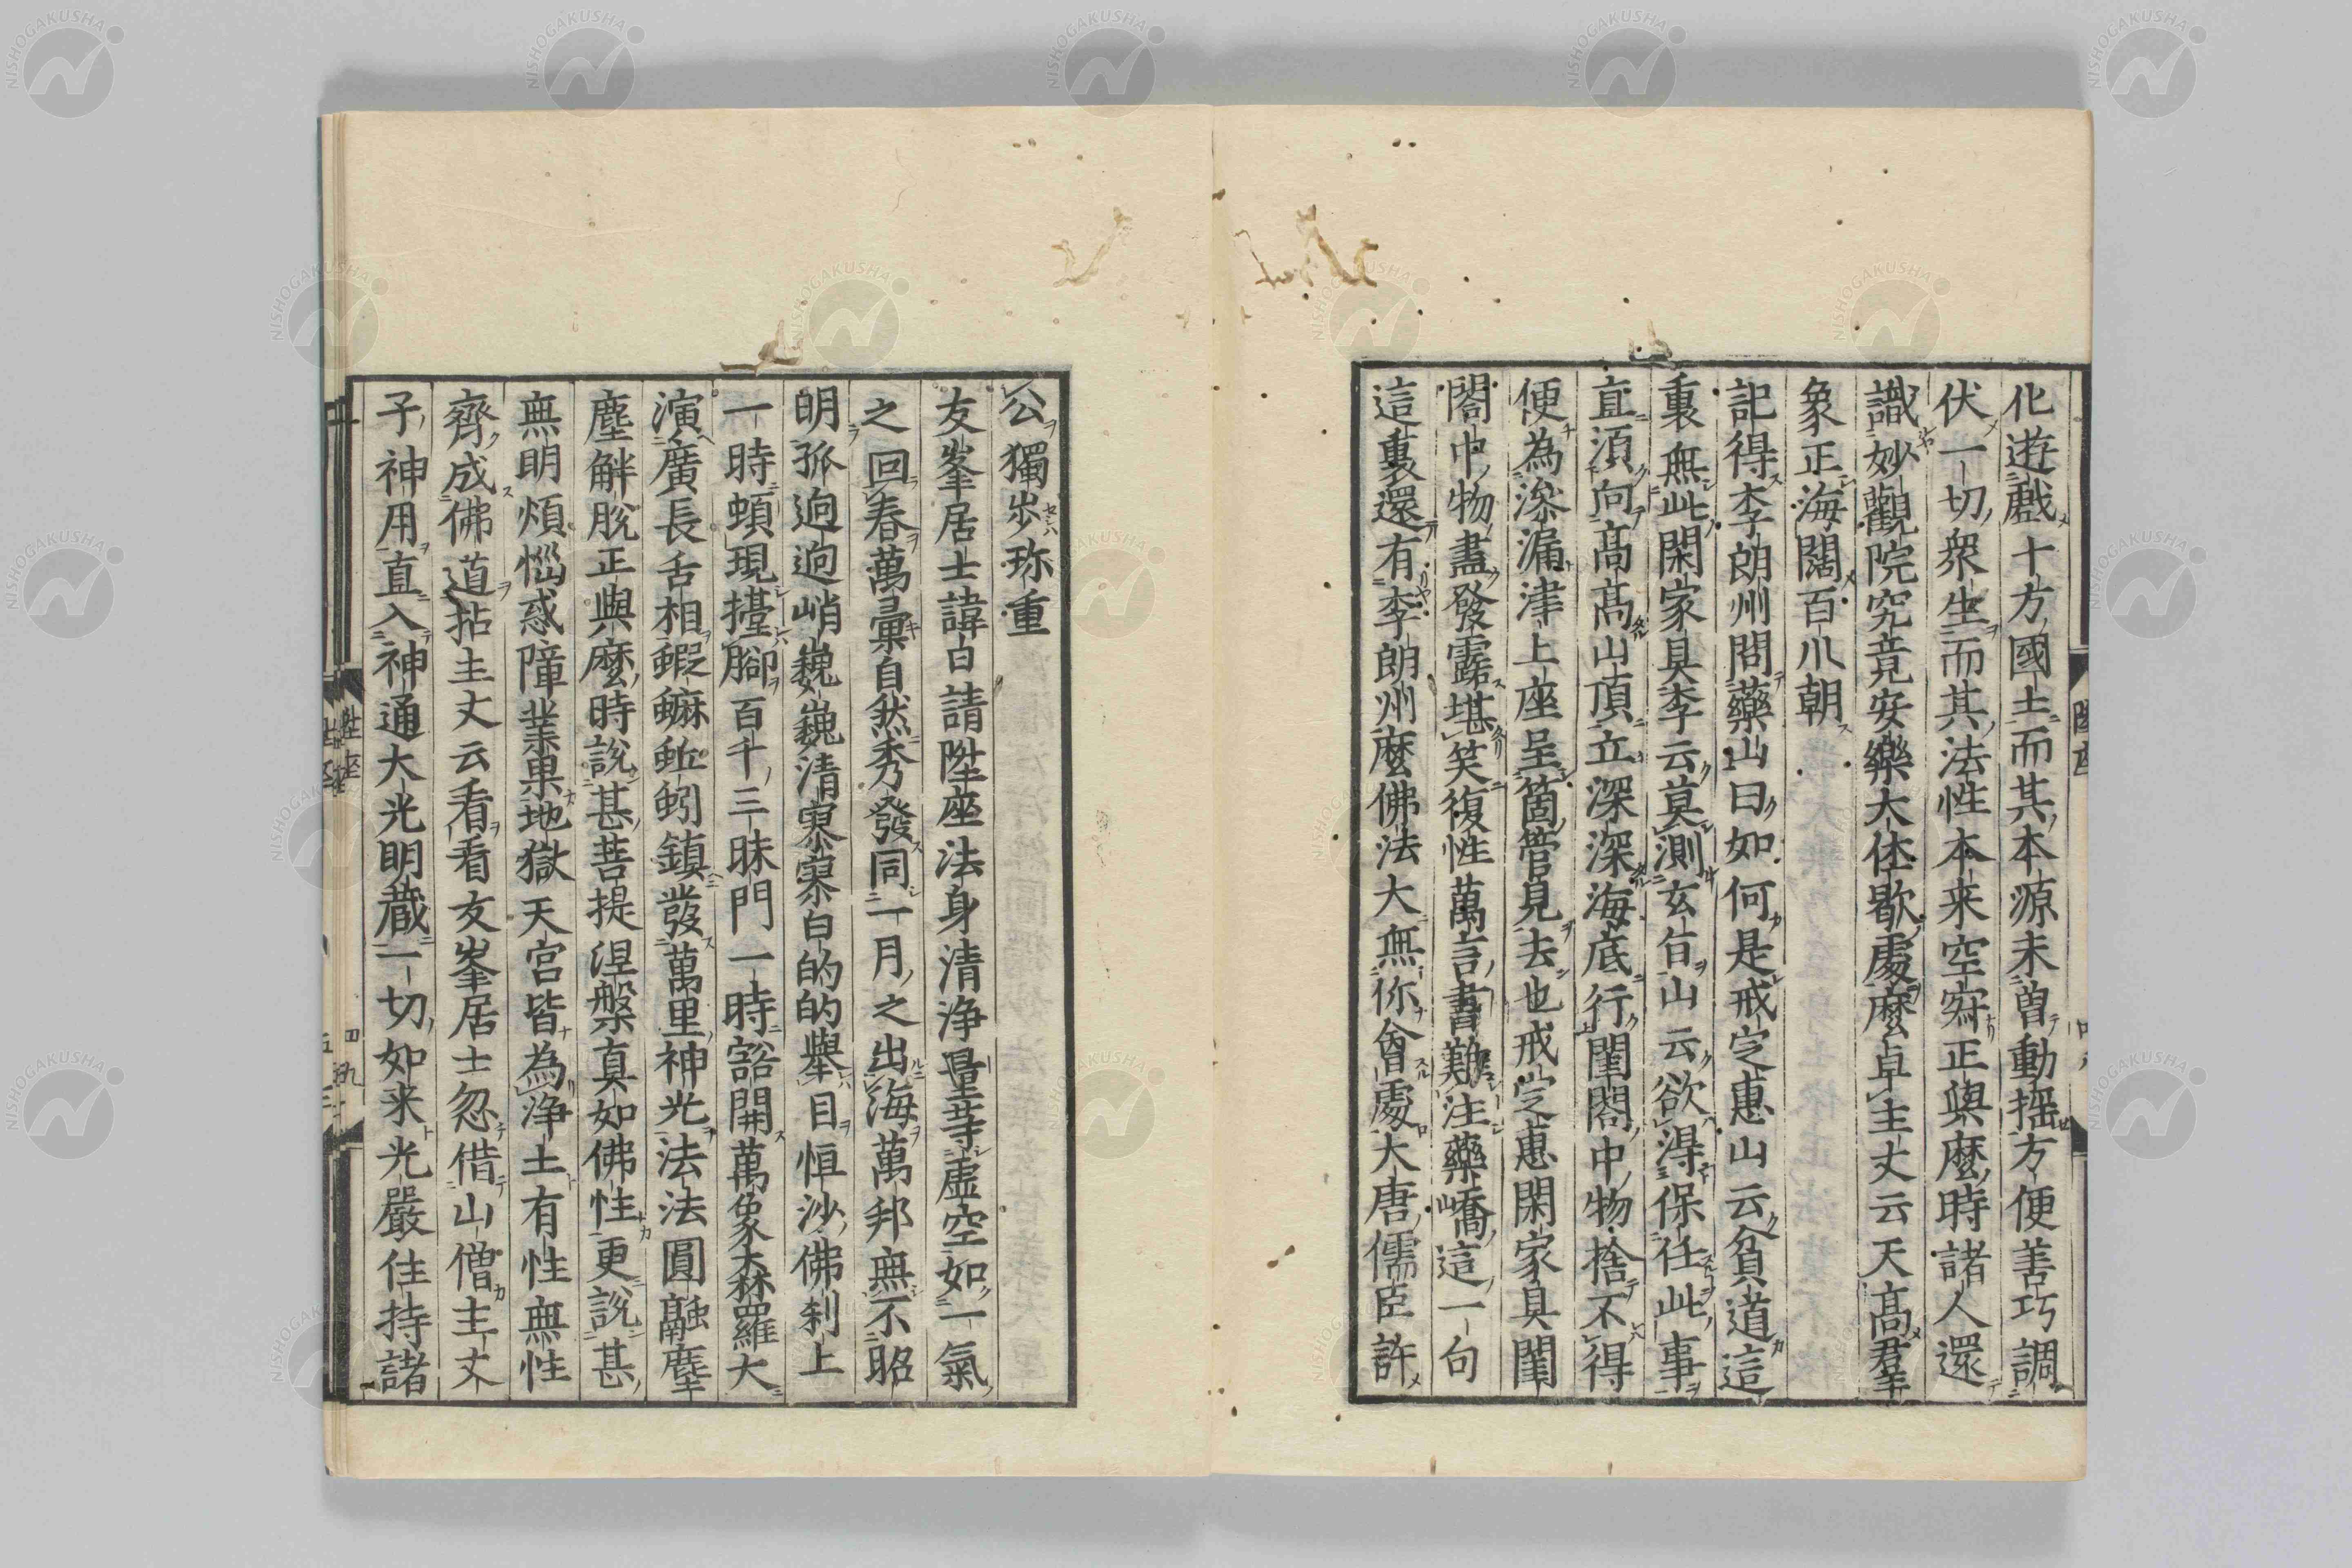 化遊戲十方國土而其本源未曽動揺方便善巧調
伏一切衆生而其法性本来空寂正與麼時諸人還
識妙觀院究竟安樂大休歇處麼卓主丈云天高羣
象正海闊百川朝
記得李朗州問藥山曰如何是戒定惠山云貧道這
裏無此閑家具李云莫測玄旨山云欲得保任此事
直須向高高山頂立深深海底行閨閤中物捨不得
便為滲漏津上座呈箇管見去也戒定惠閑家具閨
閤中物盡發露堪笑復性萬言書難注藥嶠這一句
這裏還有李朗州麼佛法大無你會處大唐儒臣許
公獨步珎重
友峯居士諱日請陞座法身清浄量等虛空如一氣
之回春萬彙自然秀發同一月之出海萬邦無不昭
明孤逈逈峭巍巍清寥寥白的的舉目恒沙佛刹上
一時頓現擡腳百千三昧門一時豁開萬象森羅大
演廣長舌相蝦蟆蚯蚓鎮發萬里神光法法圓融塵
塵解脫正與麼時說甚菩提涅槃真如佛性更說甚
無明煩惱惑障業果地獄天宮皆為浄土有性無性
齊成佛道拈主丈云看看友峯居士忽借山僧主丈
子神用直入神通大光明蔵一切如来光嚴住持諸